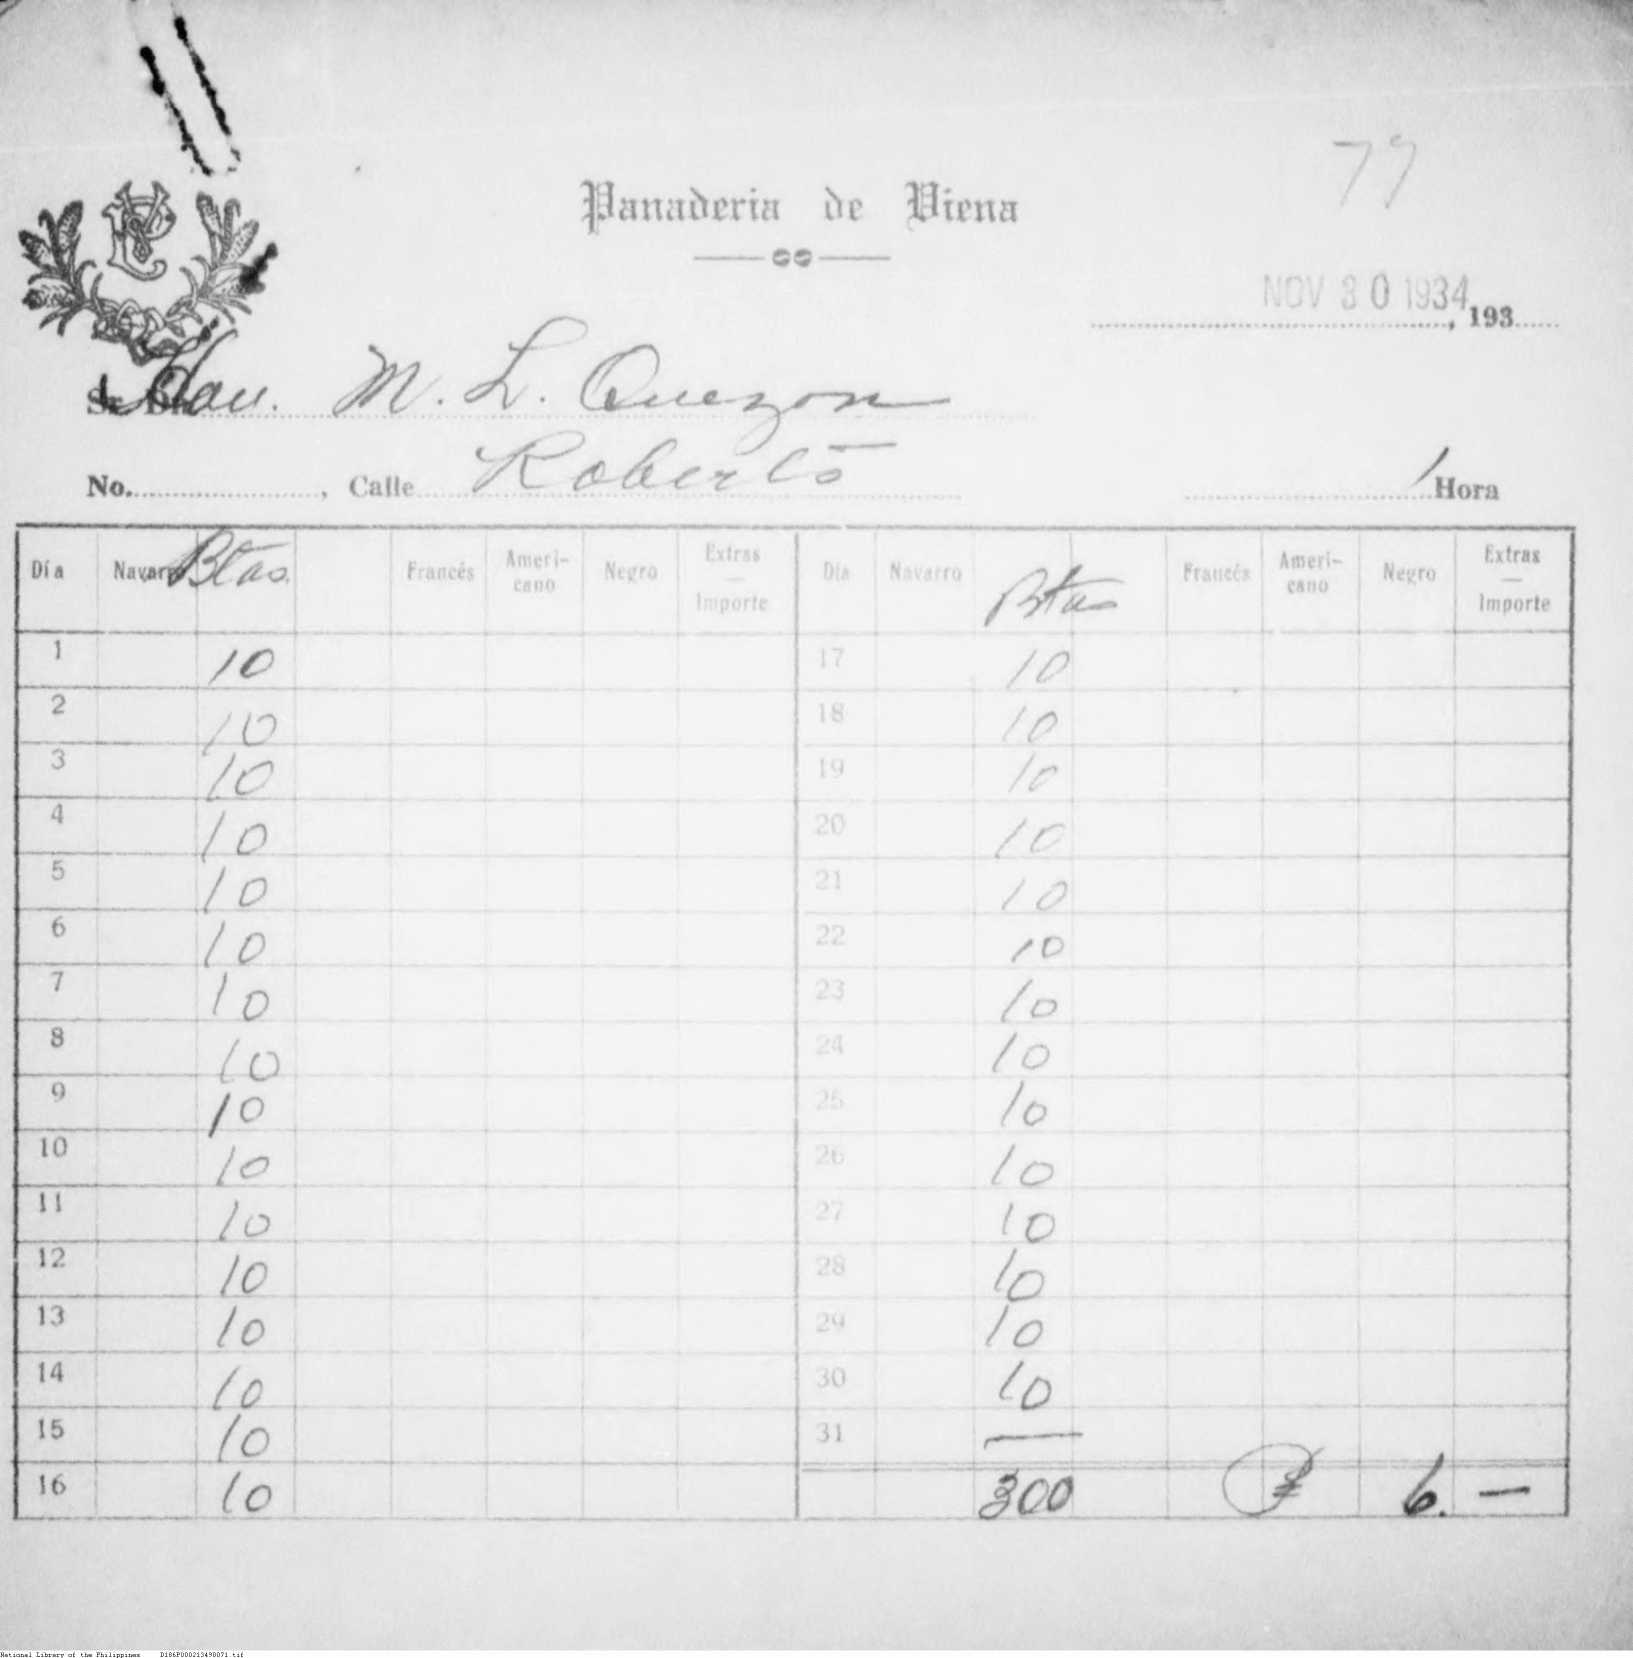 77
Panaderia de Viena
NOV 30 1934, 193
Sr. Dn. Hon. M. L. Quezon
No. , Calle Roberts Hora
Día Navarro Btas. Francés Ameri-cano Negro Extras — Importe Día Navarro Btas Francés Ameri-cano Negro Extras — Importe
1 10 17 10
2 10 18 10
3 10 19 10
4 10 20 10
5 10 21 10
6 10 22 10
7 10 23 10
8 10 24 10
9 10 25 10
10 10 26 10
11 10 27 10
12 10 28 10
13 10 29 10
14 10 30 10
15 10 31 —
16 10 300 ₱ 6. —
National Library of the Philippines D186P000213498071.tif